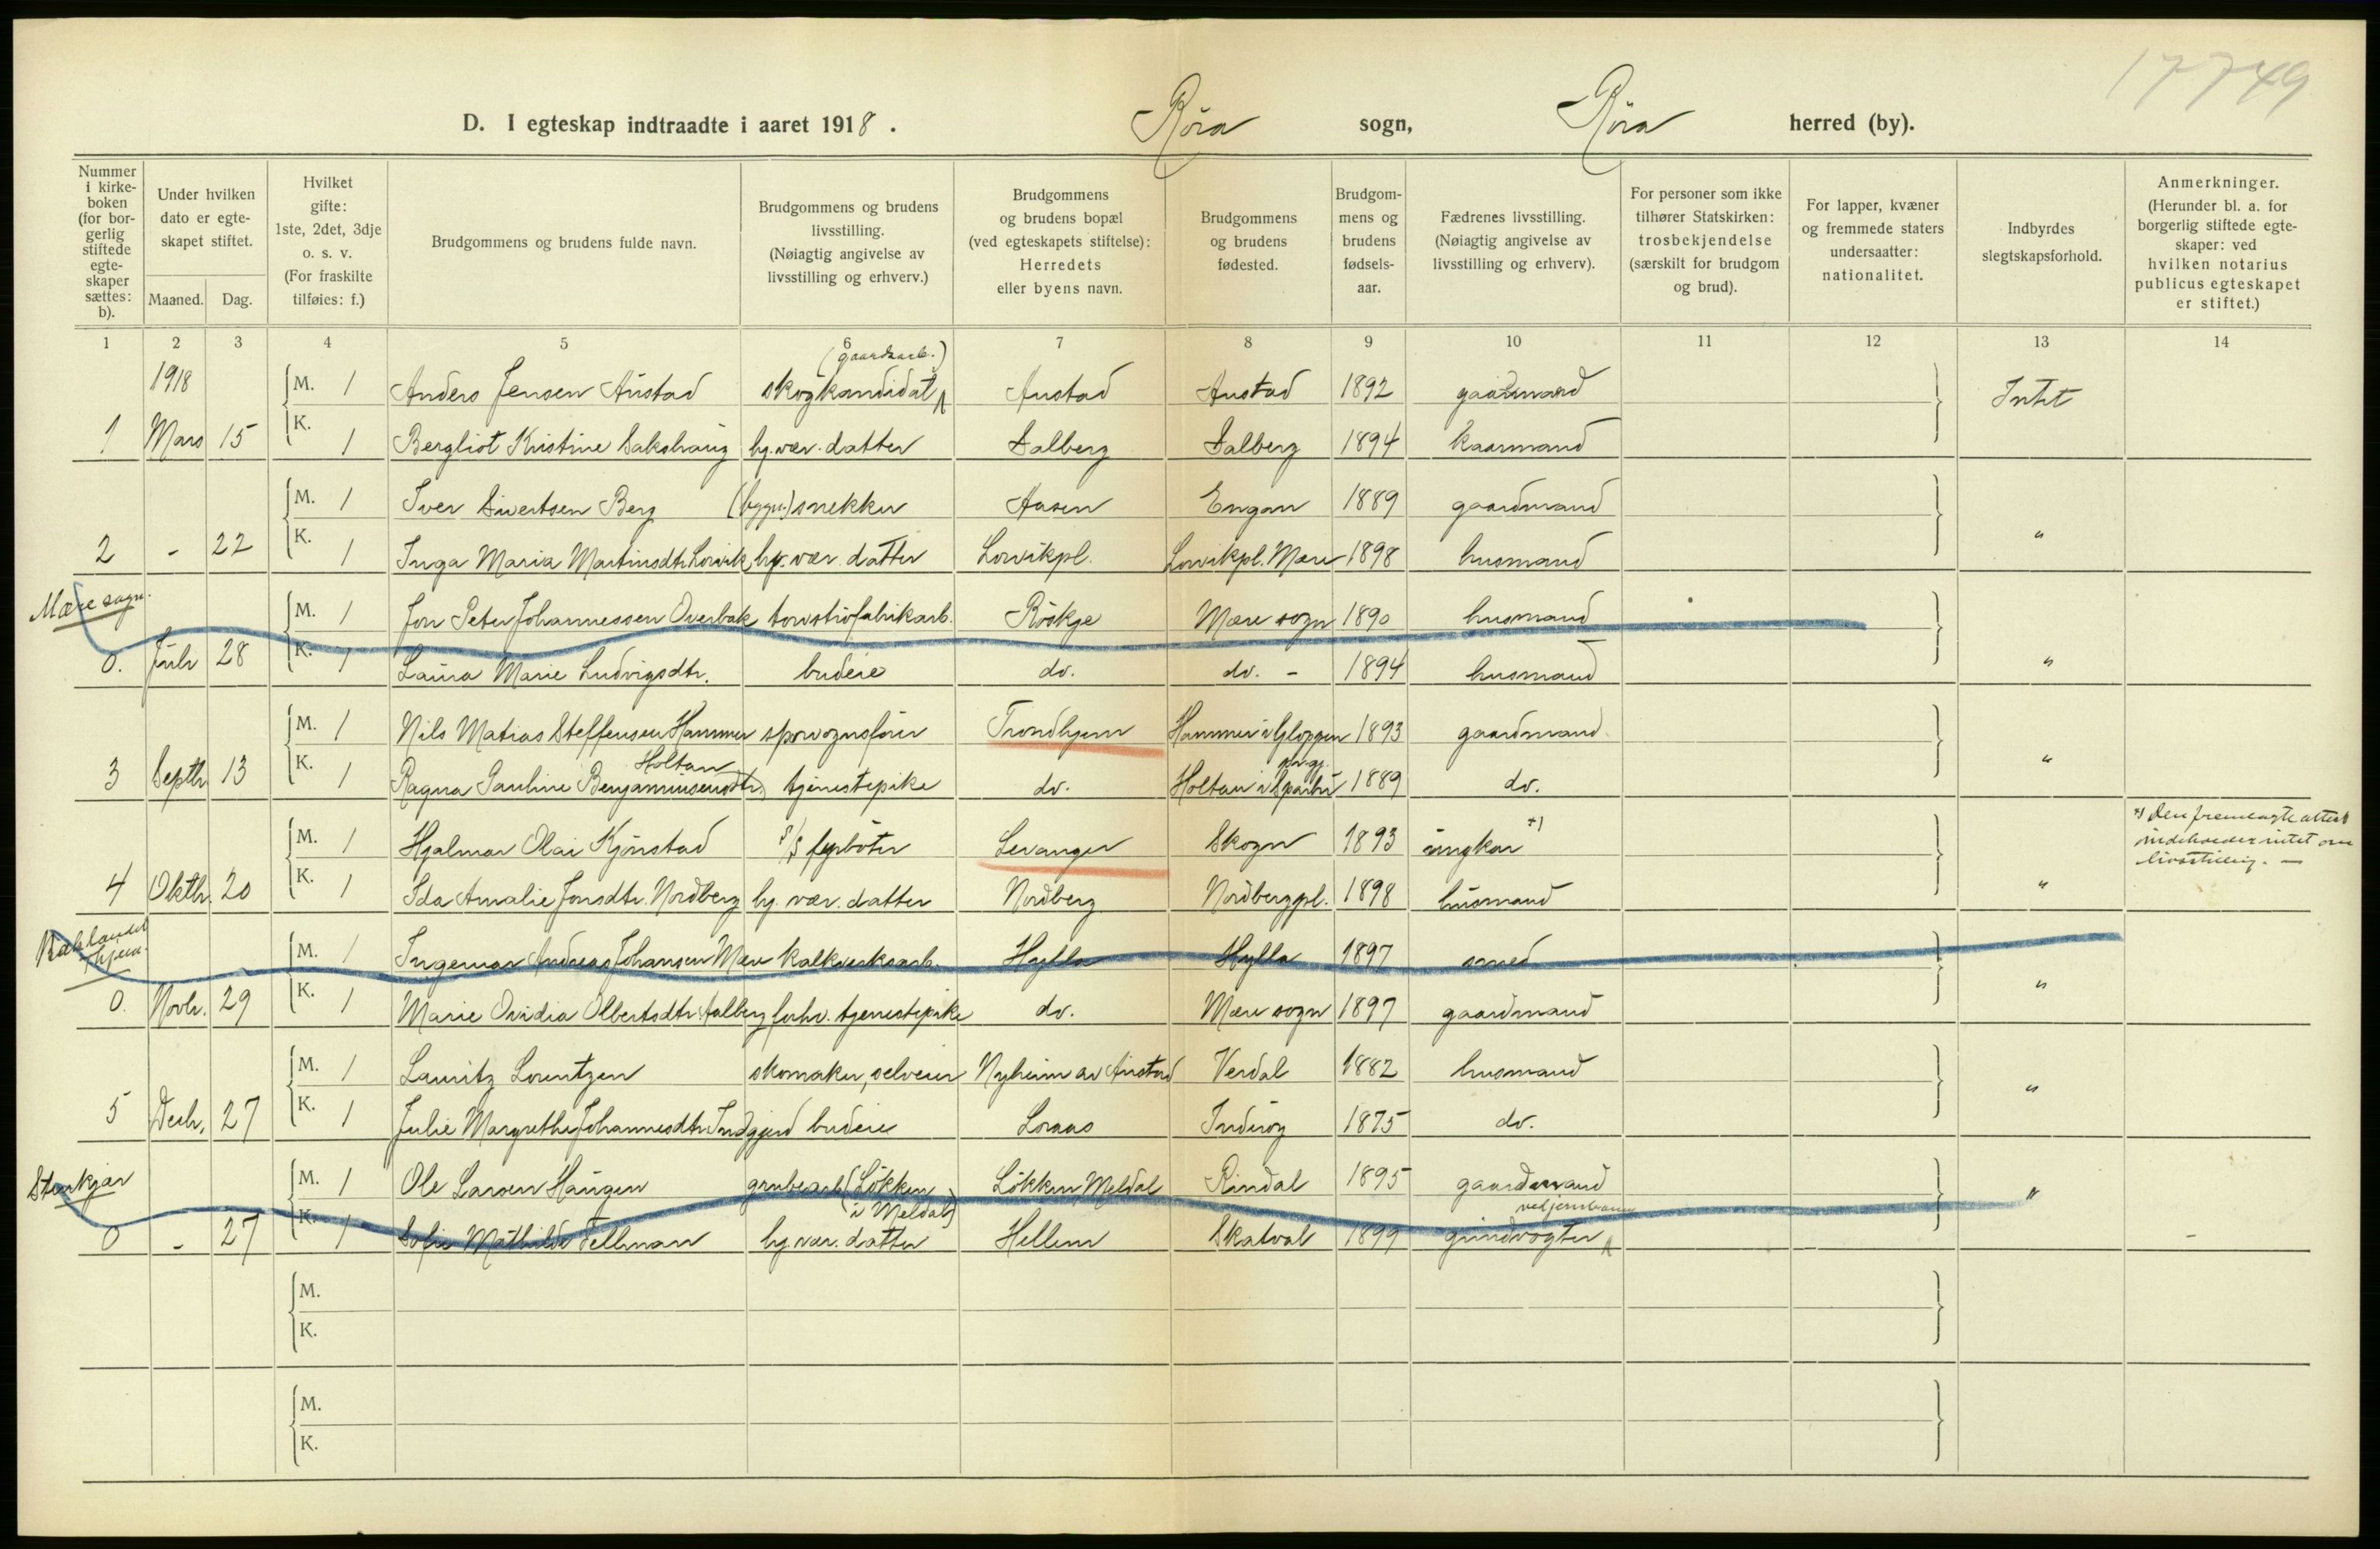 17749
D. I egteskap indtraadte i aaret 1918. Röra sogn, Röra herred (by).
Nummer i kirkeboken (for borgerlig stiftede egteskaper sættes: b).
Under hvilken dato er egteskapet stiftet.
Maaned. Dag.
Hvilket gifte: 1ste, 2det, 3dje o. s. v. (For fraskilte tilføies: f.)
Brudgommens og brudens fulde navn.
Brudgommens og brudens livsstilling. (Nøiagtig angivelse av livsstilling og erhverv.)
Brudgommens og brudens bopæl (ved egteskapets stiftelse): Herredets eller byens navn.
Brudgommens og brudens fødested.
Brudgommens og brudens fødselsaar.
Fædrenes livsstilling. (Nøiagtig angivelse av livsstilling og erhverv).
For personer som ikke tilhører Statskirken: trosbekjendelse (særskilt for brudgom og brud).
For lapper, kvæner og fremmede staters undersaatter: nationalitet.
Indbyrdes slegtskapsforhold.
Anmerkninger. (Herunder bl. a. for borgerlig stiftede egteskaper: ved hvilken notarius publicus egteskapet er stiftet.)
1 2 3 4 5 6 7 8 9 10 11 12 13 14
(gaardsarb.)
1918 M. 1 Anders Jensen Austad skogkandidat Austad Austad 1892 gaardmand Intet
1 Mars 15 K. 1 Bergliot Kristine Sakshaug hg. vær. datter Salberg Salberg 1894 kaarmand
M. 1 Iver Sivertsen Berg (bygn.) snekker Aasen Engan 1889 gaardmand
2 - 22 K. 1 Inga Maria Martinsdtr. Lorvik hg. vær. datter Lorvikpl. Lorvikpl. Mære 1898 husmand "
Mære sogn.
M. 1 Jon Peter Johannessen Overbak torvströfabrikarb. Röskje Mære sogn 1890 husmand
0. Juli 28 K. 1 Laura Marie Ludvigsdtr. budeie do. do. - 1894 husmand "
M. 1 Nils Matias Steffensen Hammer sporvognsförer Trondhjem Hammer i Gloppen 1893 gaardmand
Holtan prgj.
3 Septbr 13 K. 1 Ragna Pauline Benjaminsensdtr. tjenestepike do. Holtan i Sparbu 1889 do. "
M. 1 Hjalmar Olai Kjönstad S/S fyrböter Levanger Skogn 1893 ungkar *)
*) Den fremlagte attest indeholder intet om livsstilling. -
4 Oktbr. 20 K. 1 Ida Amalie Jonsdtr. Nordberg hg. vær. datter Nordberg Nordbergpl. 1898 husmand "
Baklandet Thjem.
M. 1 Ingemar Andreas Johansen Mære kalkverksarb. Hylla Hylla 1897 smed
0. Novbr. 29 K. 1 Marie Ovidia Olbertsdtr. Aalberg forhv. tjenestepike do. Mære sogn 1897 gaardmand "
M. 1 Lauritz Lorentzen skomaker, selveier Nyheim av Austad Verdal 1882 husmand
5 Decbr. 27 K. 1 Julie Margrethe Johannesdtr. Indgjerd budeie Loraas Inderöy 1875 do. "
Stenkjær
M. 1 Ole Larsen Haugen grubearb. (Lökken i Meldal) Lökken, Meldal Rindal 1895 gaardmand "
ved jernbanen
0 - 27 K. 1 Sofie Mathilde Fellman hg. vær. datter Hellem Skatval 1899 grindvogter -
M.
K.
M.
K.